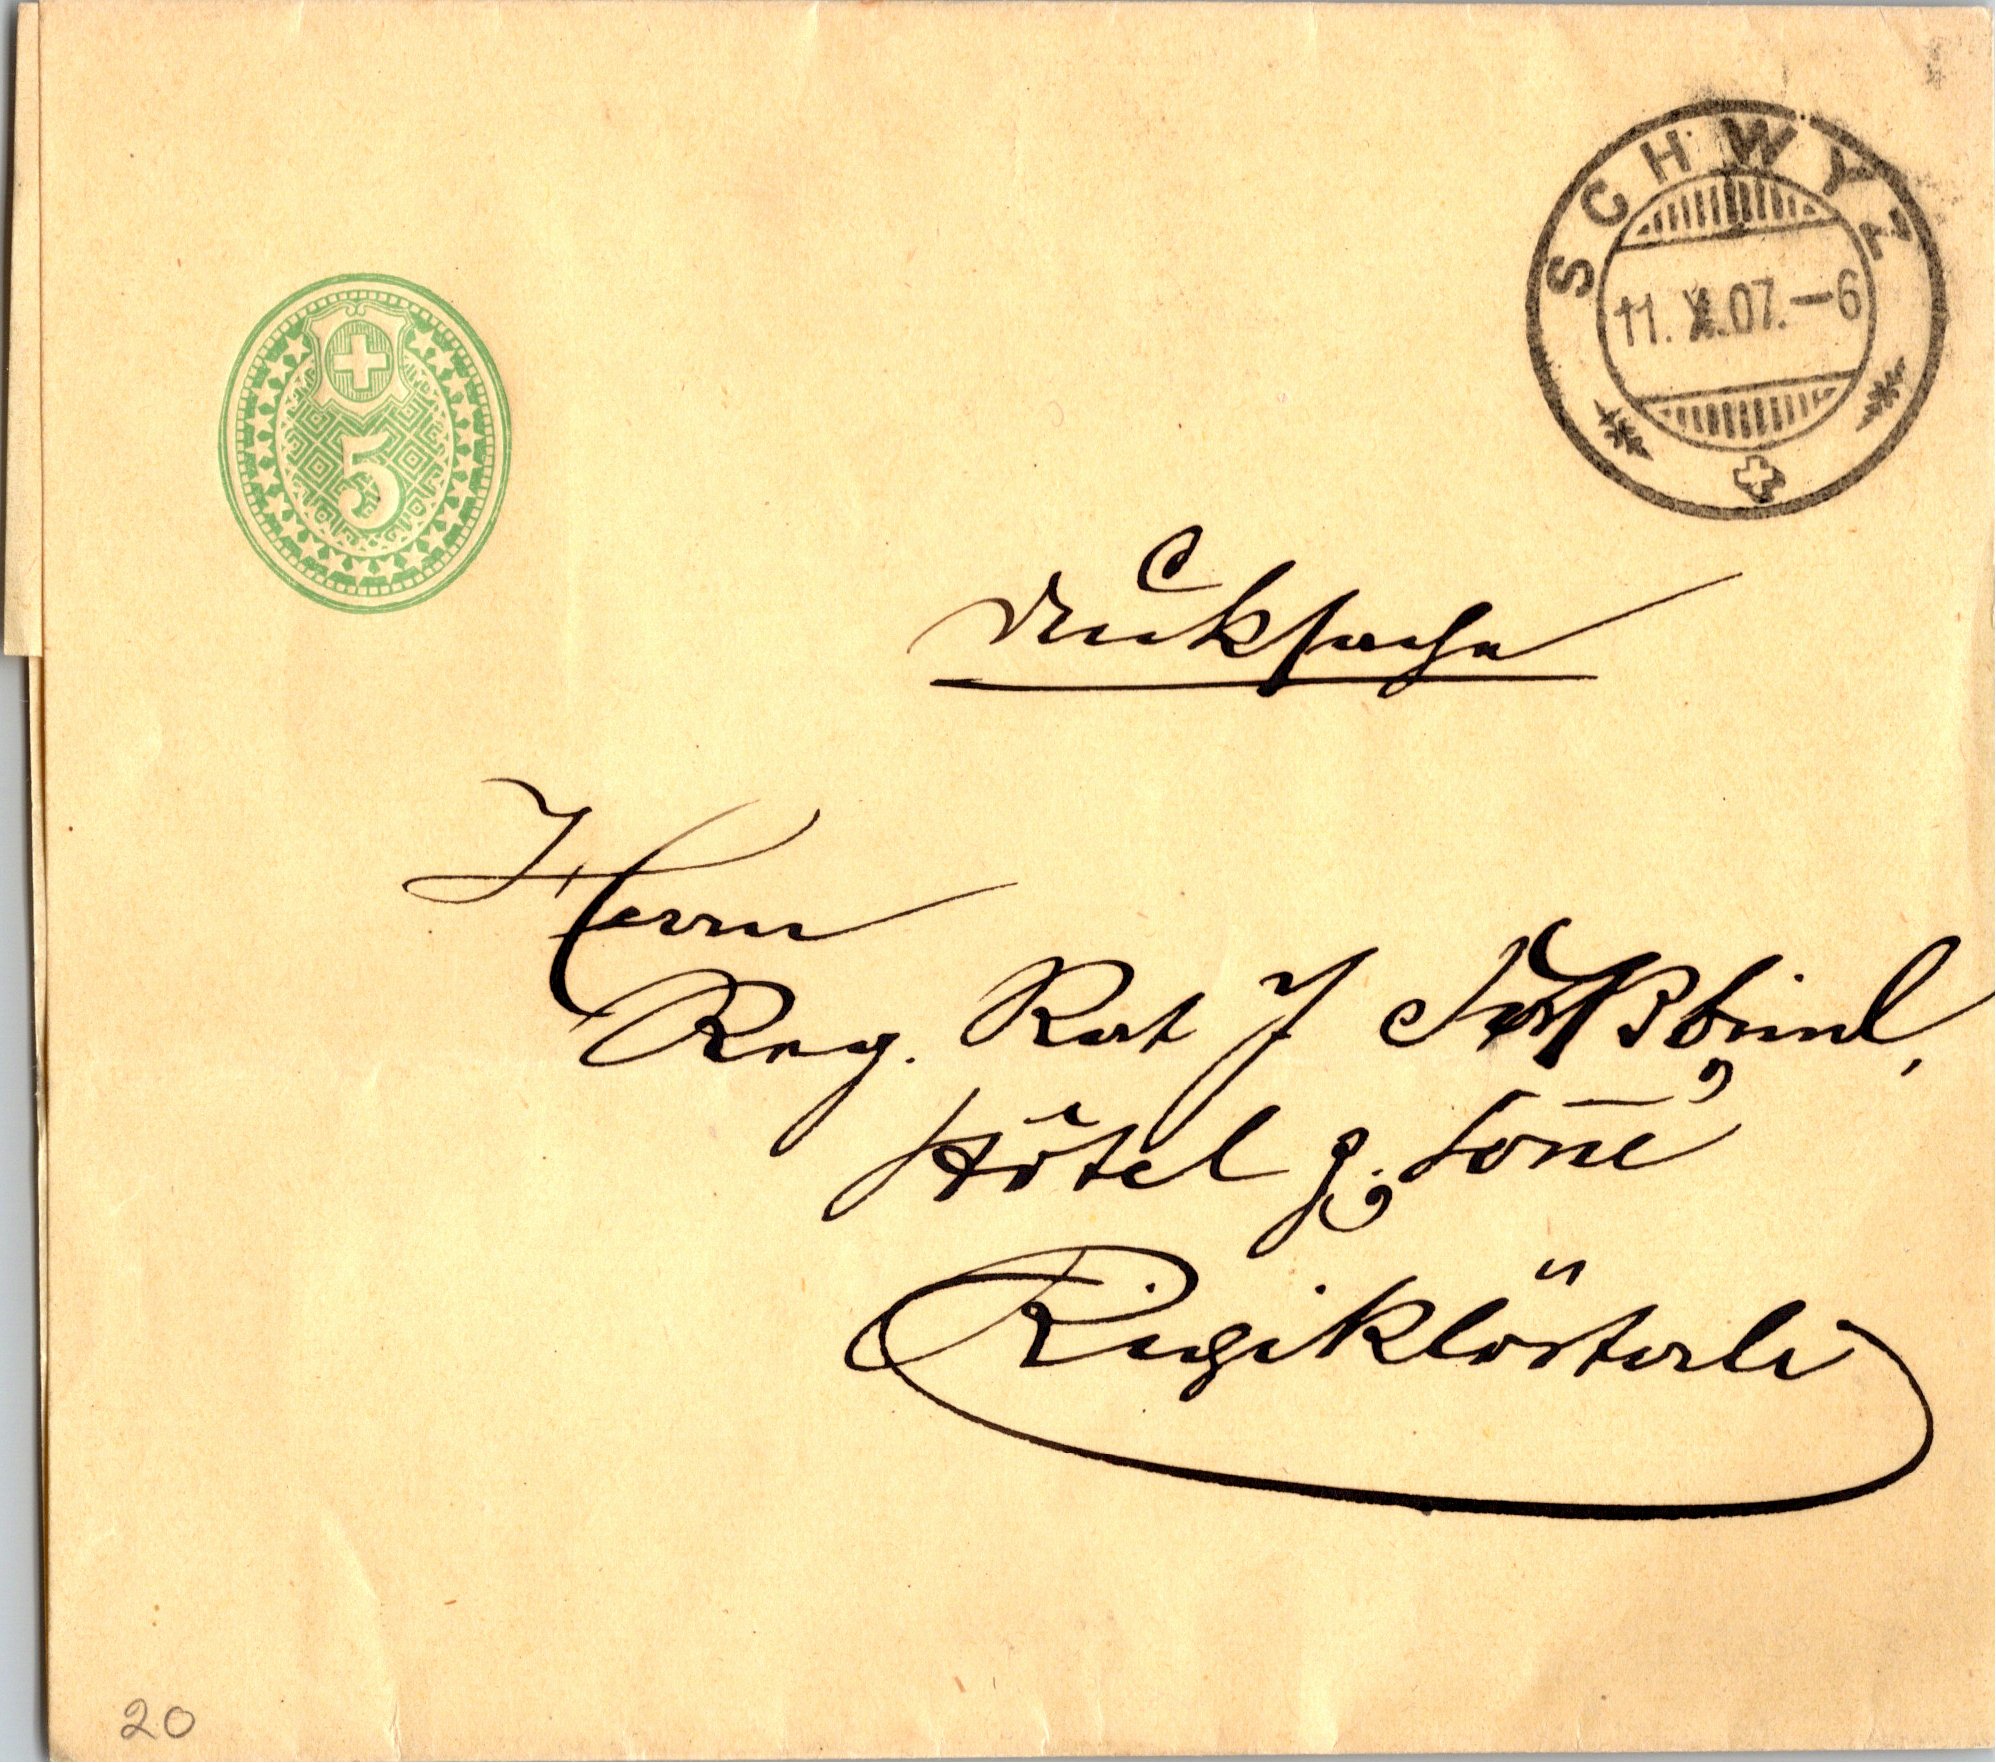 SCHWYZ
11. X.07.—6
5
Drucksache
Herrn
Reg. Rat J
Hôtel z. Sonne
Rigiklösterli
20